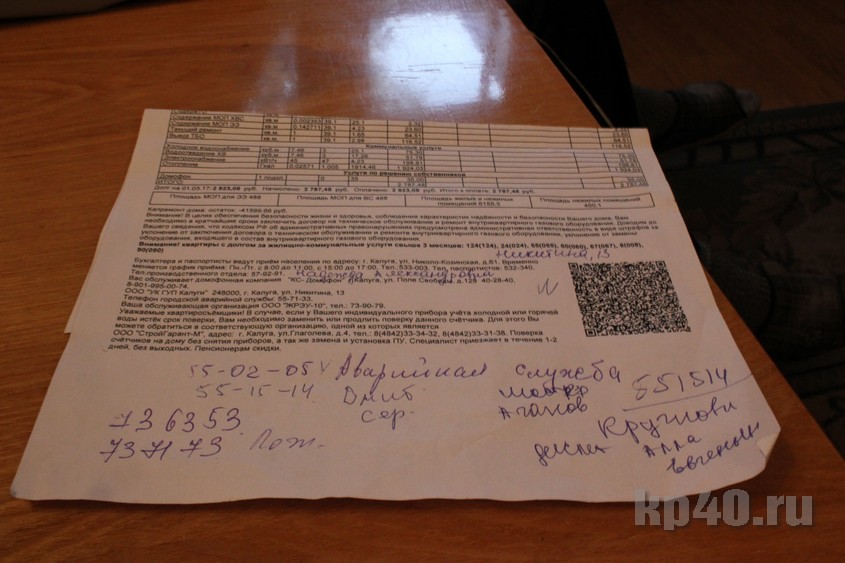 Содержание МОП ХВС кв.м 0.002393 39.1 25.1 2.32
Содержание МОП ЭЭ кв.м 0.142711 39.1 4.23 23.60
Текущий ремонт кв.м 1 39.1 1.65 64.51
Вывоз ТБО кв.м 1 39.1 2.98 116.52
Коммунальные услуги
Холодное водоснабжение куб.м 7.46 3 25.1 75.30
Водоотведение ХВ куб.м 7.46
Электроснабжение кВт/ч 45 47 4.23
Услуги по решению собственников
Домофон 1 подкл. 0 35 35.00
ИТОГО: 2 787,48
Долг на 01.03.17: 2 923,08 руб. Начислено: 2 787,48 руб. Оплачено: 2 923,08 руб. Итого к оплате: 2 787,48 руб.
Площадь МОП для ЭЭ 488 Площадь МОП для ВС 488 Площадь жилых и нежилых помещений Площадь нежилых помещений 490.1
Капремонт дома: остаток: -41599.66 руб.
Внимание! В целях обеспечения безопасности жизни и здоровья, соблюдения характеристик надёжности и безопасности Вашего дома, Вам
необходимо в кратчайшие сроки заключить договор на техническое обслуживание и ремонт внутриквартирного газового оборудования. Доводим до
Вашего сведения, что кодексом РФ об административных правонарушениях предусмотрена административная ответственность в виде штрафа за
уклонение от заключения договора о техническом обслуживании и ремонте внутриквартирного газового оборудования, уклонение от замены
оборудования, входящего в состав внутриквартирного газового оборудования.
Внимание! квартиры с долгом за жилищно-коммунальные услуги свыше 3 месяцев: 124(124), 24(024), 65(065), 60(060), 67(067), 8(008),
90(090)
Никитина, 13
Бухгалтера и паспортисты ведут приём населения по адресу: г. Калуга, ул. Николо-Козинская, д.51. Временно
меняется график приёма: Пн.-Пт. с 8.00 до 11:00, с 15:00 до 17:00. Тел. 533-003. Тел. паспортистов: 532-340.
Тел.производственного отдела: 57-92-91. Надежда Александровна
Вас обслуживает домофонная компания "КС-Домофон" г.Калуга, ул. Поле Свободы, д.128 40-28-40,
8-901-995-00-74.
ООО "УК ГУП Калуги" 248000, г. Калуга, ул. Никитина, 13
Телефон городской аварийной службы: 55-71-33.
Ваша обслуживающая организация ООО "ЖРЭУ-10" тел.: 73-90-79.
Уважаемые квартиросъёмщики! В случае, если у Вашего индивидуального прибора учёта холодной или горячей
воды истёк срок поверки, Вам необходимо заменить или продлить поверку данного счётчика. Для этого Вы
можете обратиться в соответствующую организацию, одной из которых является
ООО "СтройГарант-М", адрес: г. Калуга, ул.Глаголева, д.4, тел.: 8(4842)33-34-32, 8(4842)33-31-38. Поверка
счётчиков на дому без снятия приборов, а так же замена и установка ПУ. Специалист приезжает в течение 1-2
дней, без выходных. Пенсионерам скидки.
55-02-05 Аварийная служба
55-15-14 Дмит. 551514
сер. Агапов
736353
737173 Пож.
Алла
kp40.ru